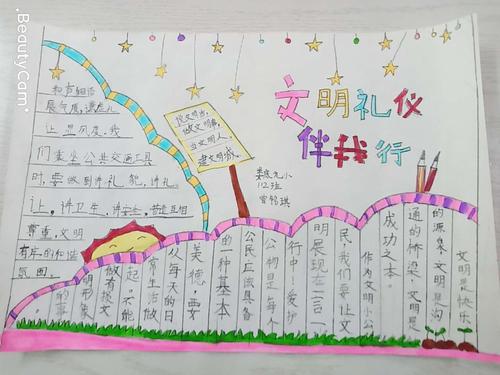 BeautyCam
文明礼仪
伴我行
说文明话,
做文明事,
当文明人,
建文明城。
112班
和声细语
展气度,谦虚礼
让显风度,我
们乘坐公共交通工具
时,要做到讲礼貌,讲礼
让,讲卫生,讲安全,营造互相
尊重,文明
有序的和谐
氛围。
文明是快乐
的源泉,文明是沟
通的桥梁,文明是
成功之本。
作为文明小公
民,我们要让文
明展现在一言一
行中!爱护
公物是每个
公民应该具备
的一种基本
美德,要
从每天的日
常生活做
起。不能
做有损文
明形象
的事